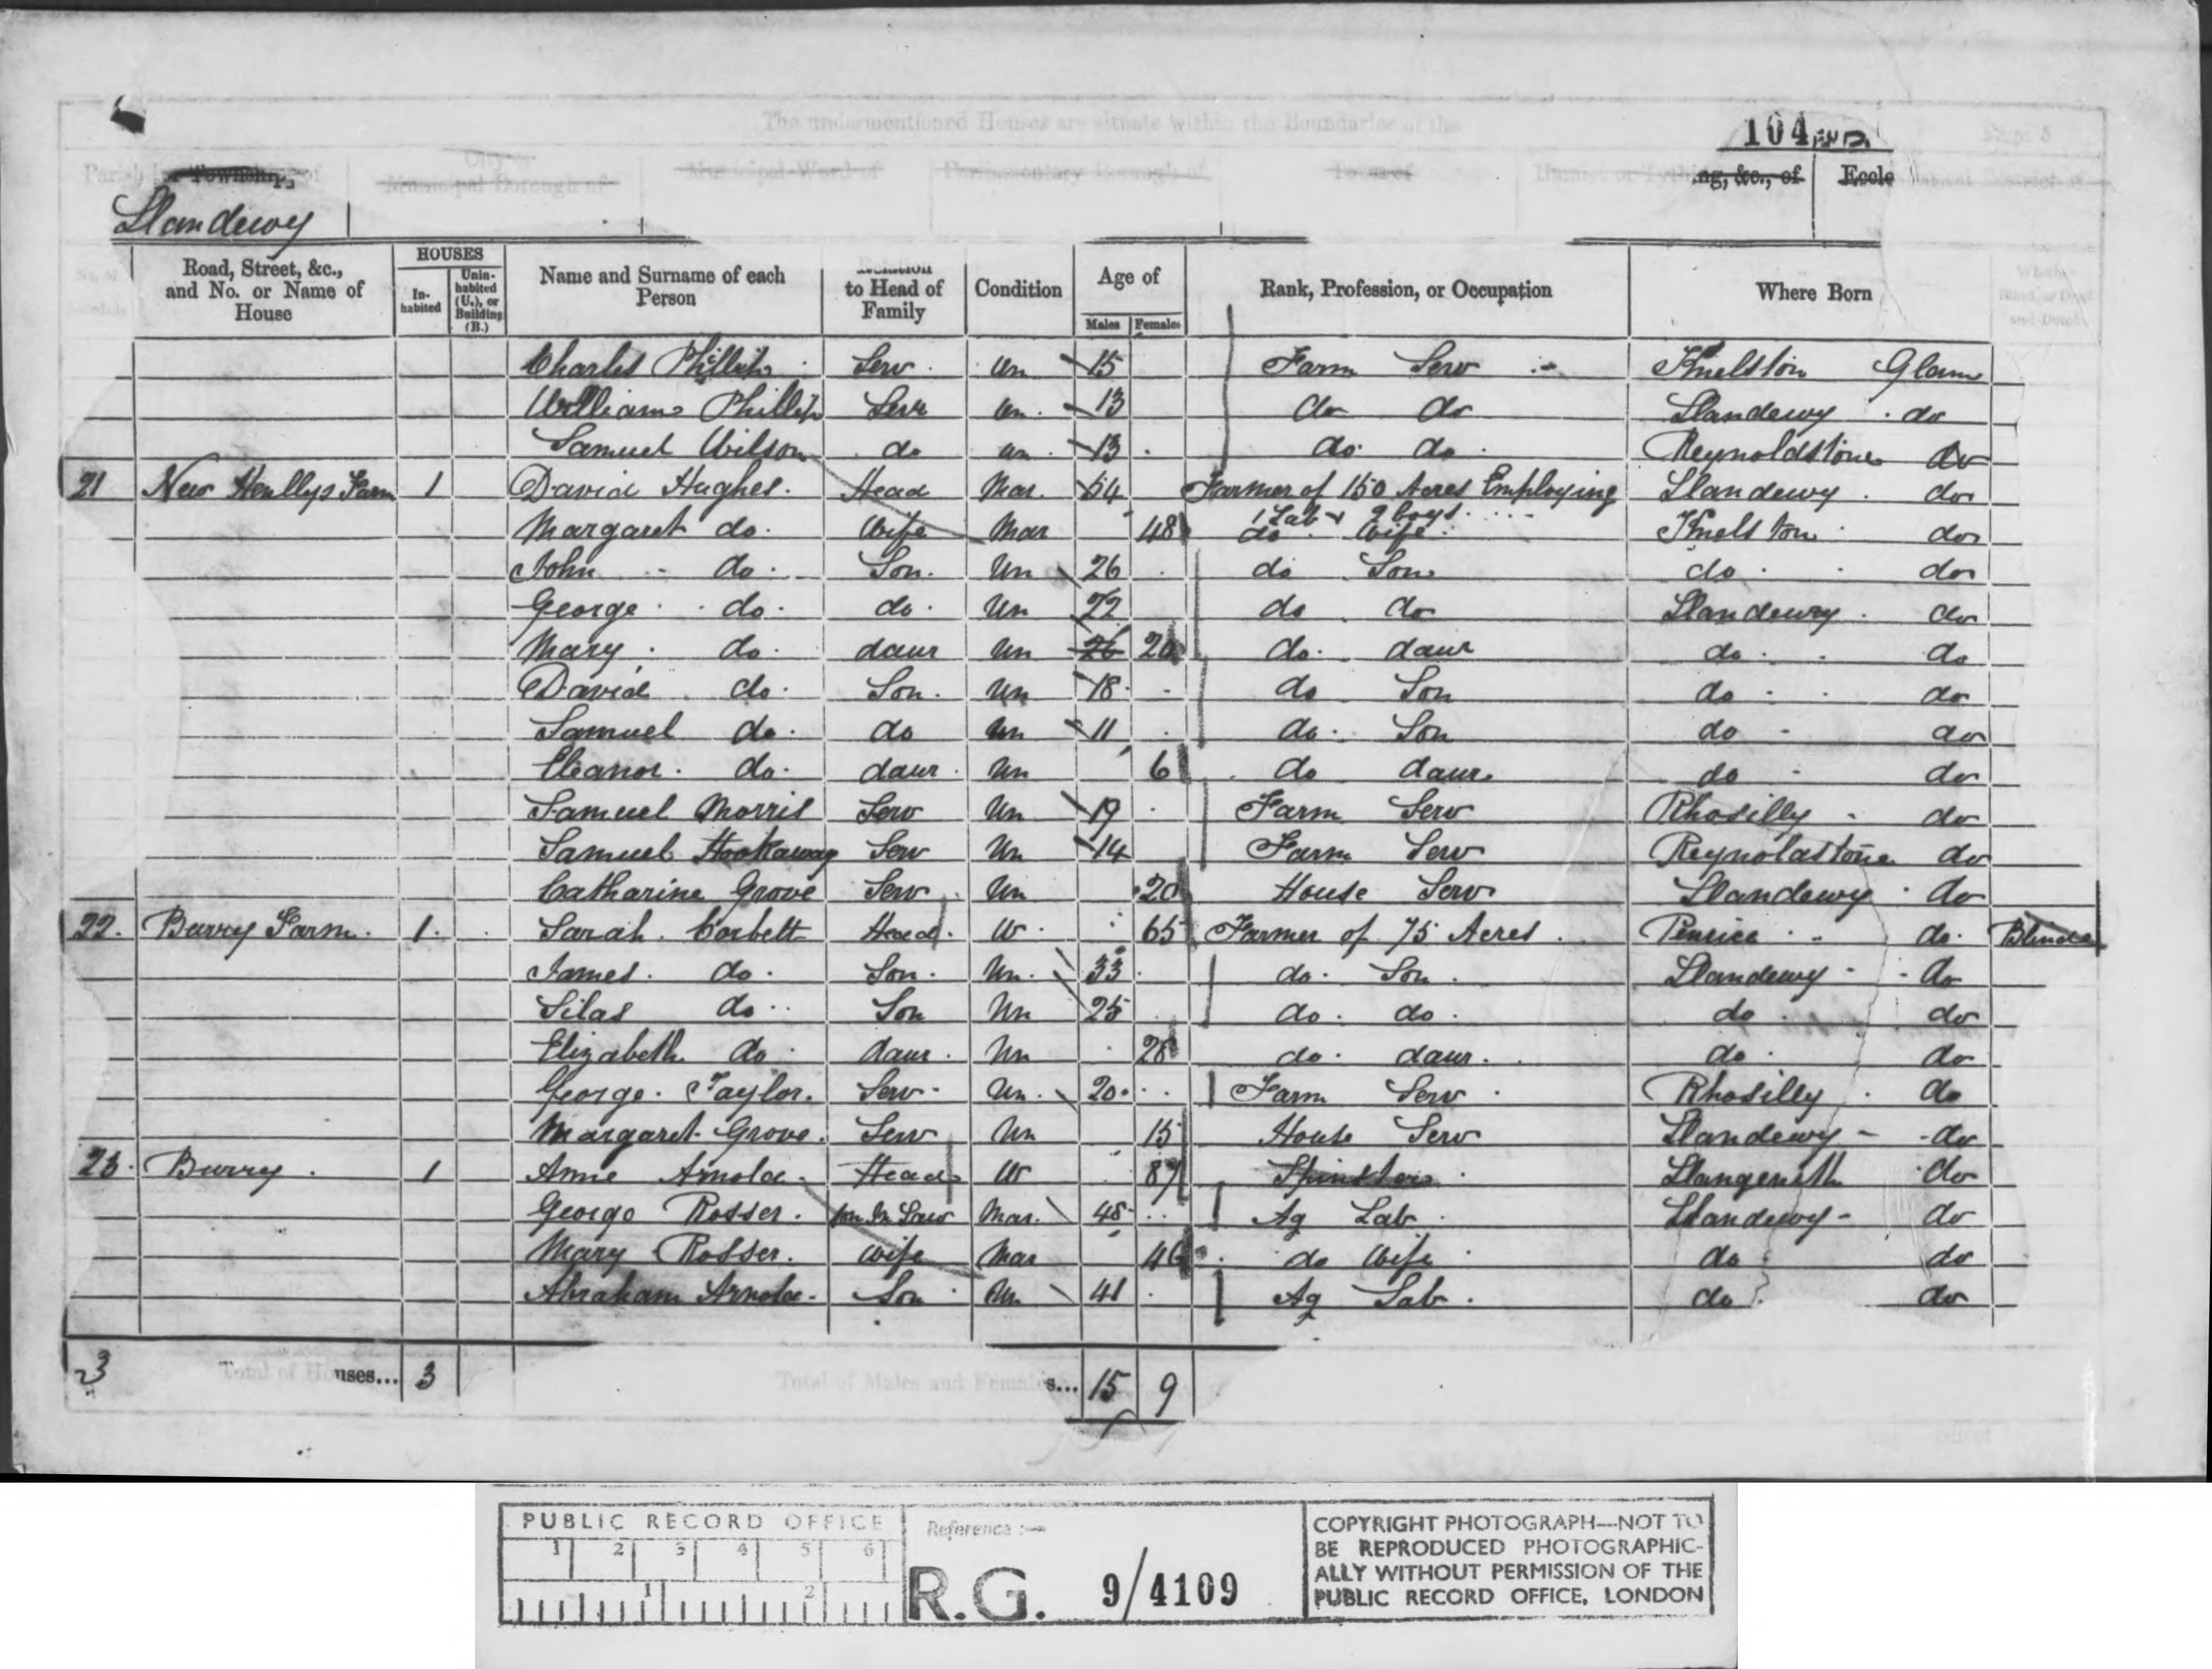 The undermentioned Houses are situate within the Boundaries of the
104 Page 5
Parish [or Township] of City or Municipal Borough of Municipal Ward of Parliamentary Borough of Town of ng, &c., of Eccle
Llandewy
Road, Street, &c., and No. or Name of House HOUSES In-habited Unin-habited (U.), or Building (B.) Name and Surname of each Person Relation to Head of Family Condition Age of Males Females Rank, Profession, or Occupation Where Born
Charles Phillip Serv Un 15 Farm Serv Knelston Glam
William Phillip Serv Un 13 do do Llandewy do
Samuel Wilson do Un 13 do do Reynoldstone do
21 New Henllys Farm 1 David Hughes Head Mar 54 Farmer of 150 Acres Employing Llandewy do
1 Lab & 2 boys
Margaret do Wife Mar 48 do Wife Knelston do
John do Son Un 26 do Son do do
George do do Un 22 do do Llandewy do
Mary do daur Un 26 20 do daur do do
David do Son Un 18 do Son do do
Samuel do do Un 11 do Son do do
Eleanor do daur Un 6 do daur do do
Samuel Morris Serv Un 19 Farm Serv Rhosilly do
Samuel Hookaway Serv Un 14 Farm Serv Reynoldstone do
Catharine Grove Serv Un 20 House Serv Llandewy do
22 Burry Farm 1 Sarah Corbett Head W 65 Farmer of 75 Acres Penrice do Blind
James do Son Un 33 do Son Llandewy do
Silas do Son Un 25 do do do do
Elizabeth do daur Un 28 do daur do do
George Taylor Serv Un 20 Farm Serv Rhosilly do
Margaret Grove Serv Un 15 House Serv Llandewy do
23 Burry 1 Anne Arnold Head W 87 Spinster Llangenith do
George Rosser Son In Law Mar 48 Ag Lab Llandewy do
Mary Rosser Wife Mar 46 do Wife do do
Abraham Arnold Son Un 41 Ag Lab do do
3 Total of Houses... 3 Total of Males and Females... 15 9
PUBLIC RECORD OFFICE
1 2 3 4 5 6
1 2
Reference :—
R.G. 9/4109
COPYRIGHT PHOTOGRAPH—NOT TO
BE REPRODUCED PHOTOGRAPHIC-
ALLY WITHOUT PERMISSION OF THE
PUBLIC RECORD OFFICE, LONDON